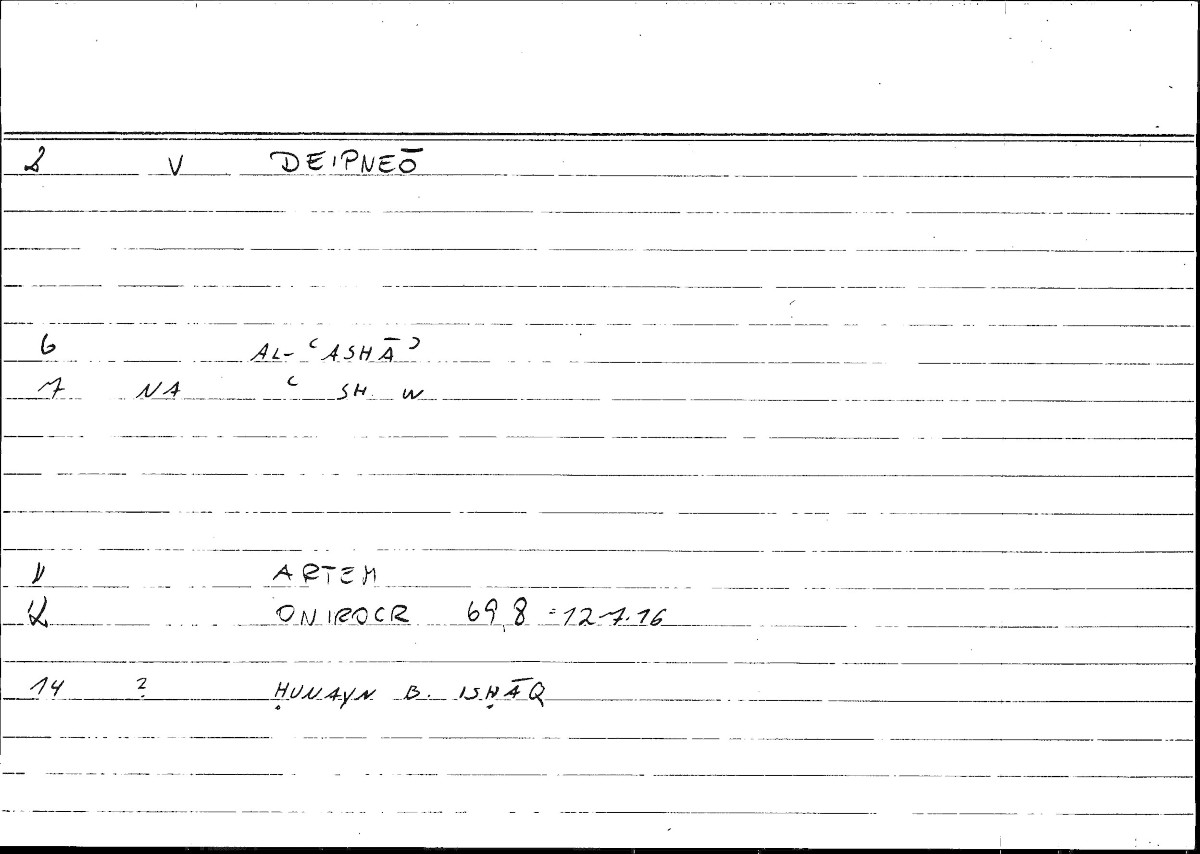 2 V DEIPNEŌ
6 AL-ʿASHĀʾ
7 NA ʿ SH W
11 ARTEM
12 ONIROCR 69,8 = 127.16
14 ? ḤUNAYN B. ISḤĀQ